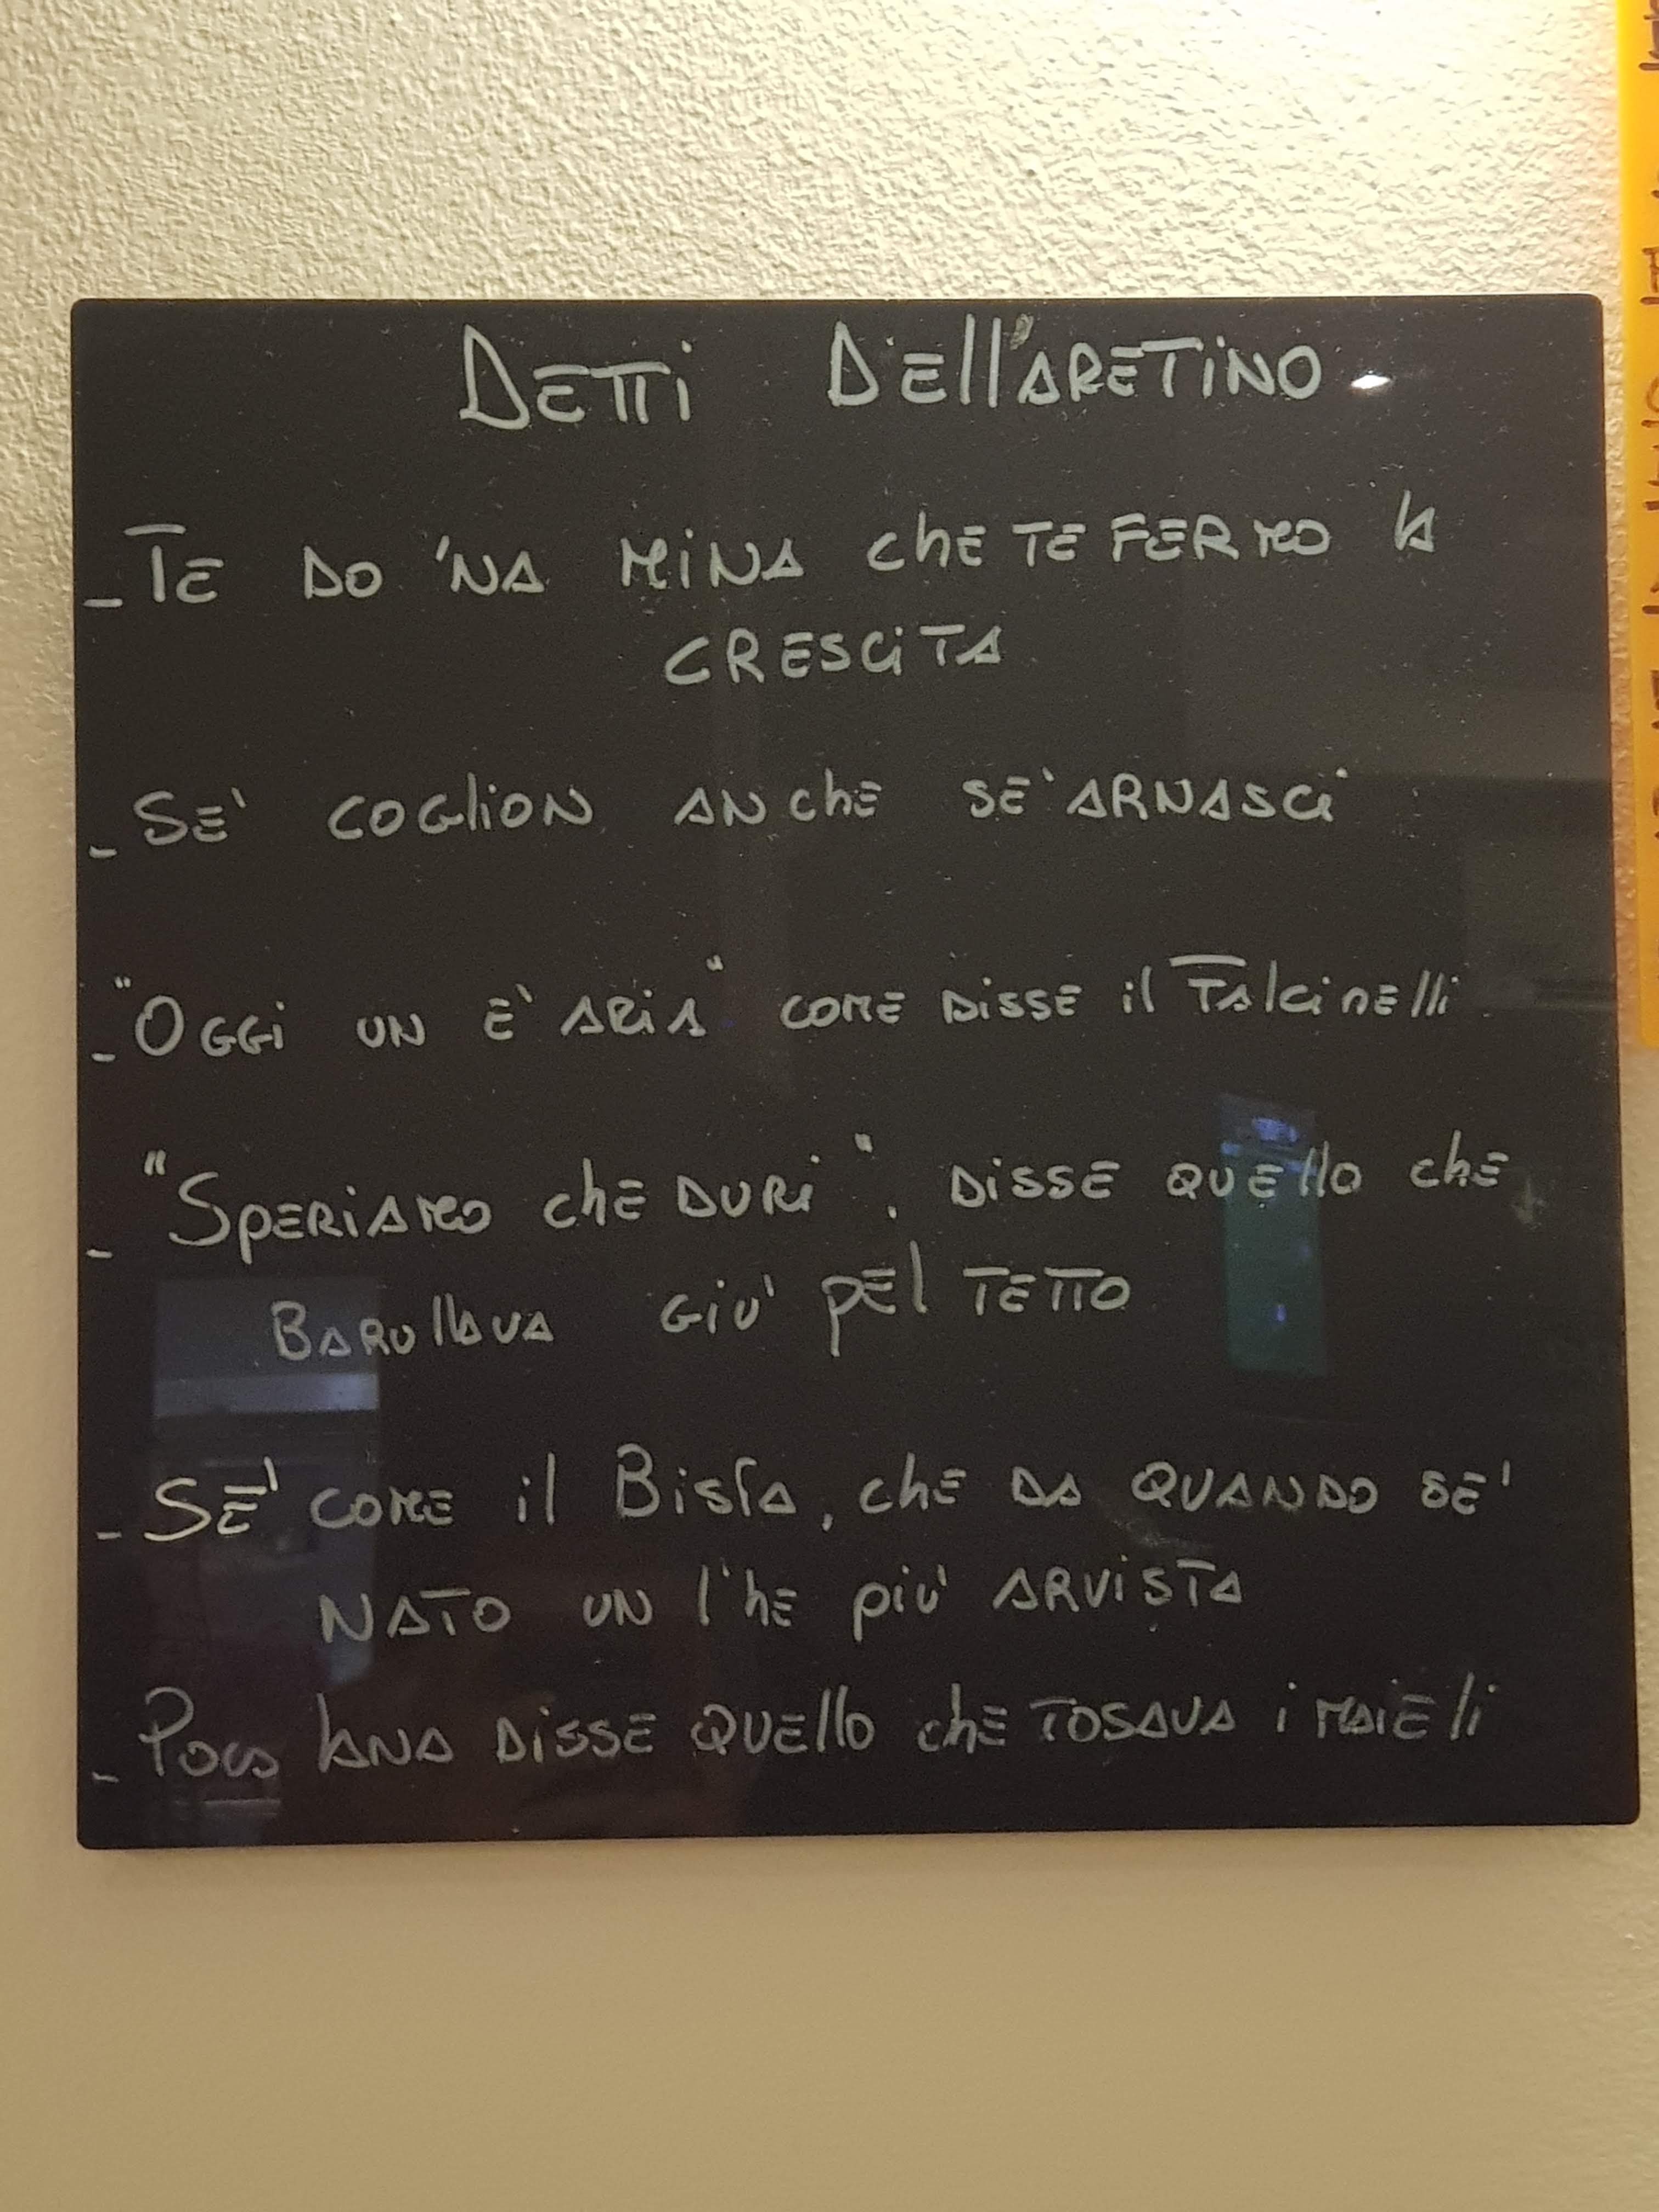 Detti Dell'aretino
- Te do 'na mina che te fermo la
crescita
- Se' coglion anche se' arnasci
- "Oggi un è aria" come disse il Falcinelli
- "Speriamo che duri". disse quello che
Barullava giu' pel tetto
- Se' come il Bista, che da quando se'
nato un l'he più arvista
- Poca lana disse quello che tosava i maieli